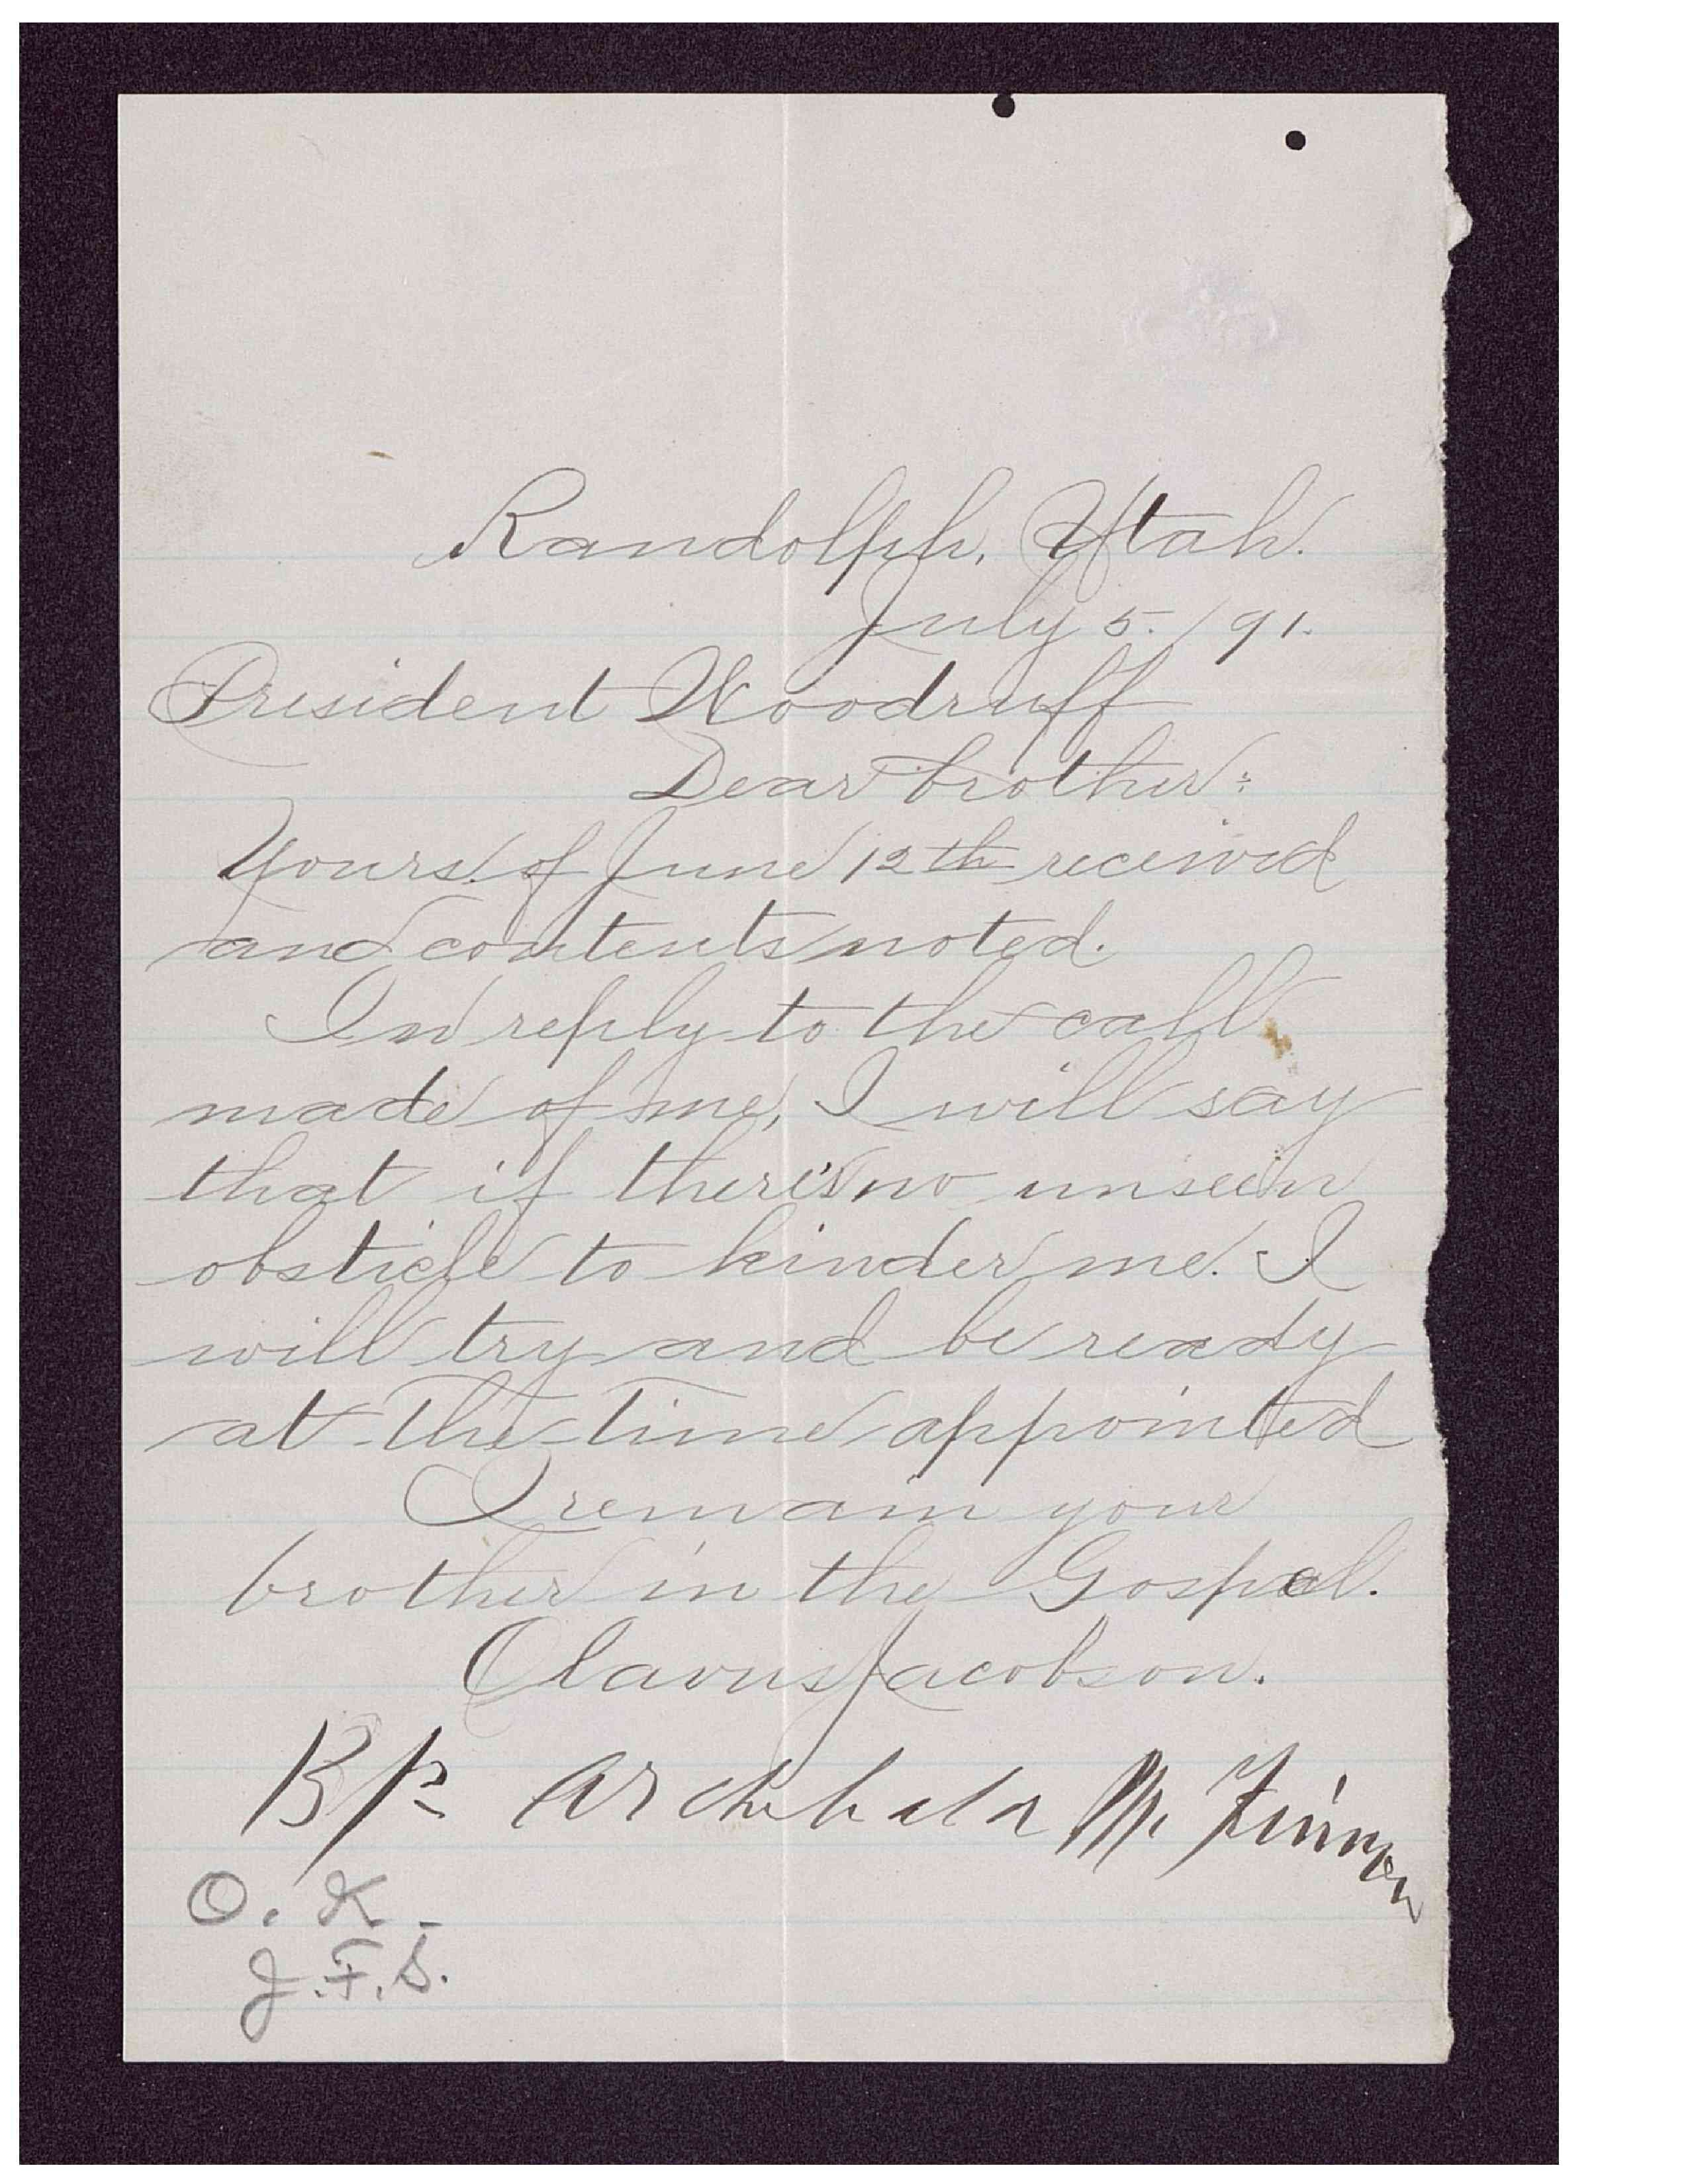 Randolph, Utah.
July 5. / 91.
President Woodruff
Dear brother:
Yours of June 12th received
and contents noted.
In reply to the call
made of me, I will say
that if there's no unseen
obsticle to hinder me. I
will try and be ready
at the time appointed
I remain your
brother in the Gospel.
Olavus Jacobson.
Bp Archibald Mc Kinnon
O. K.
J. F. S.